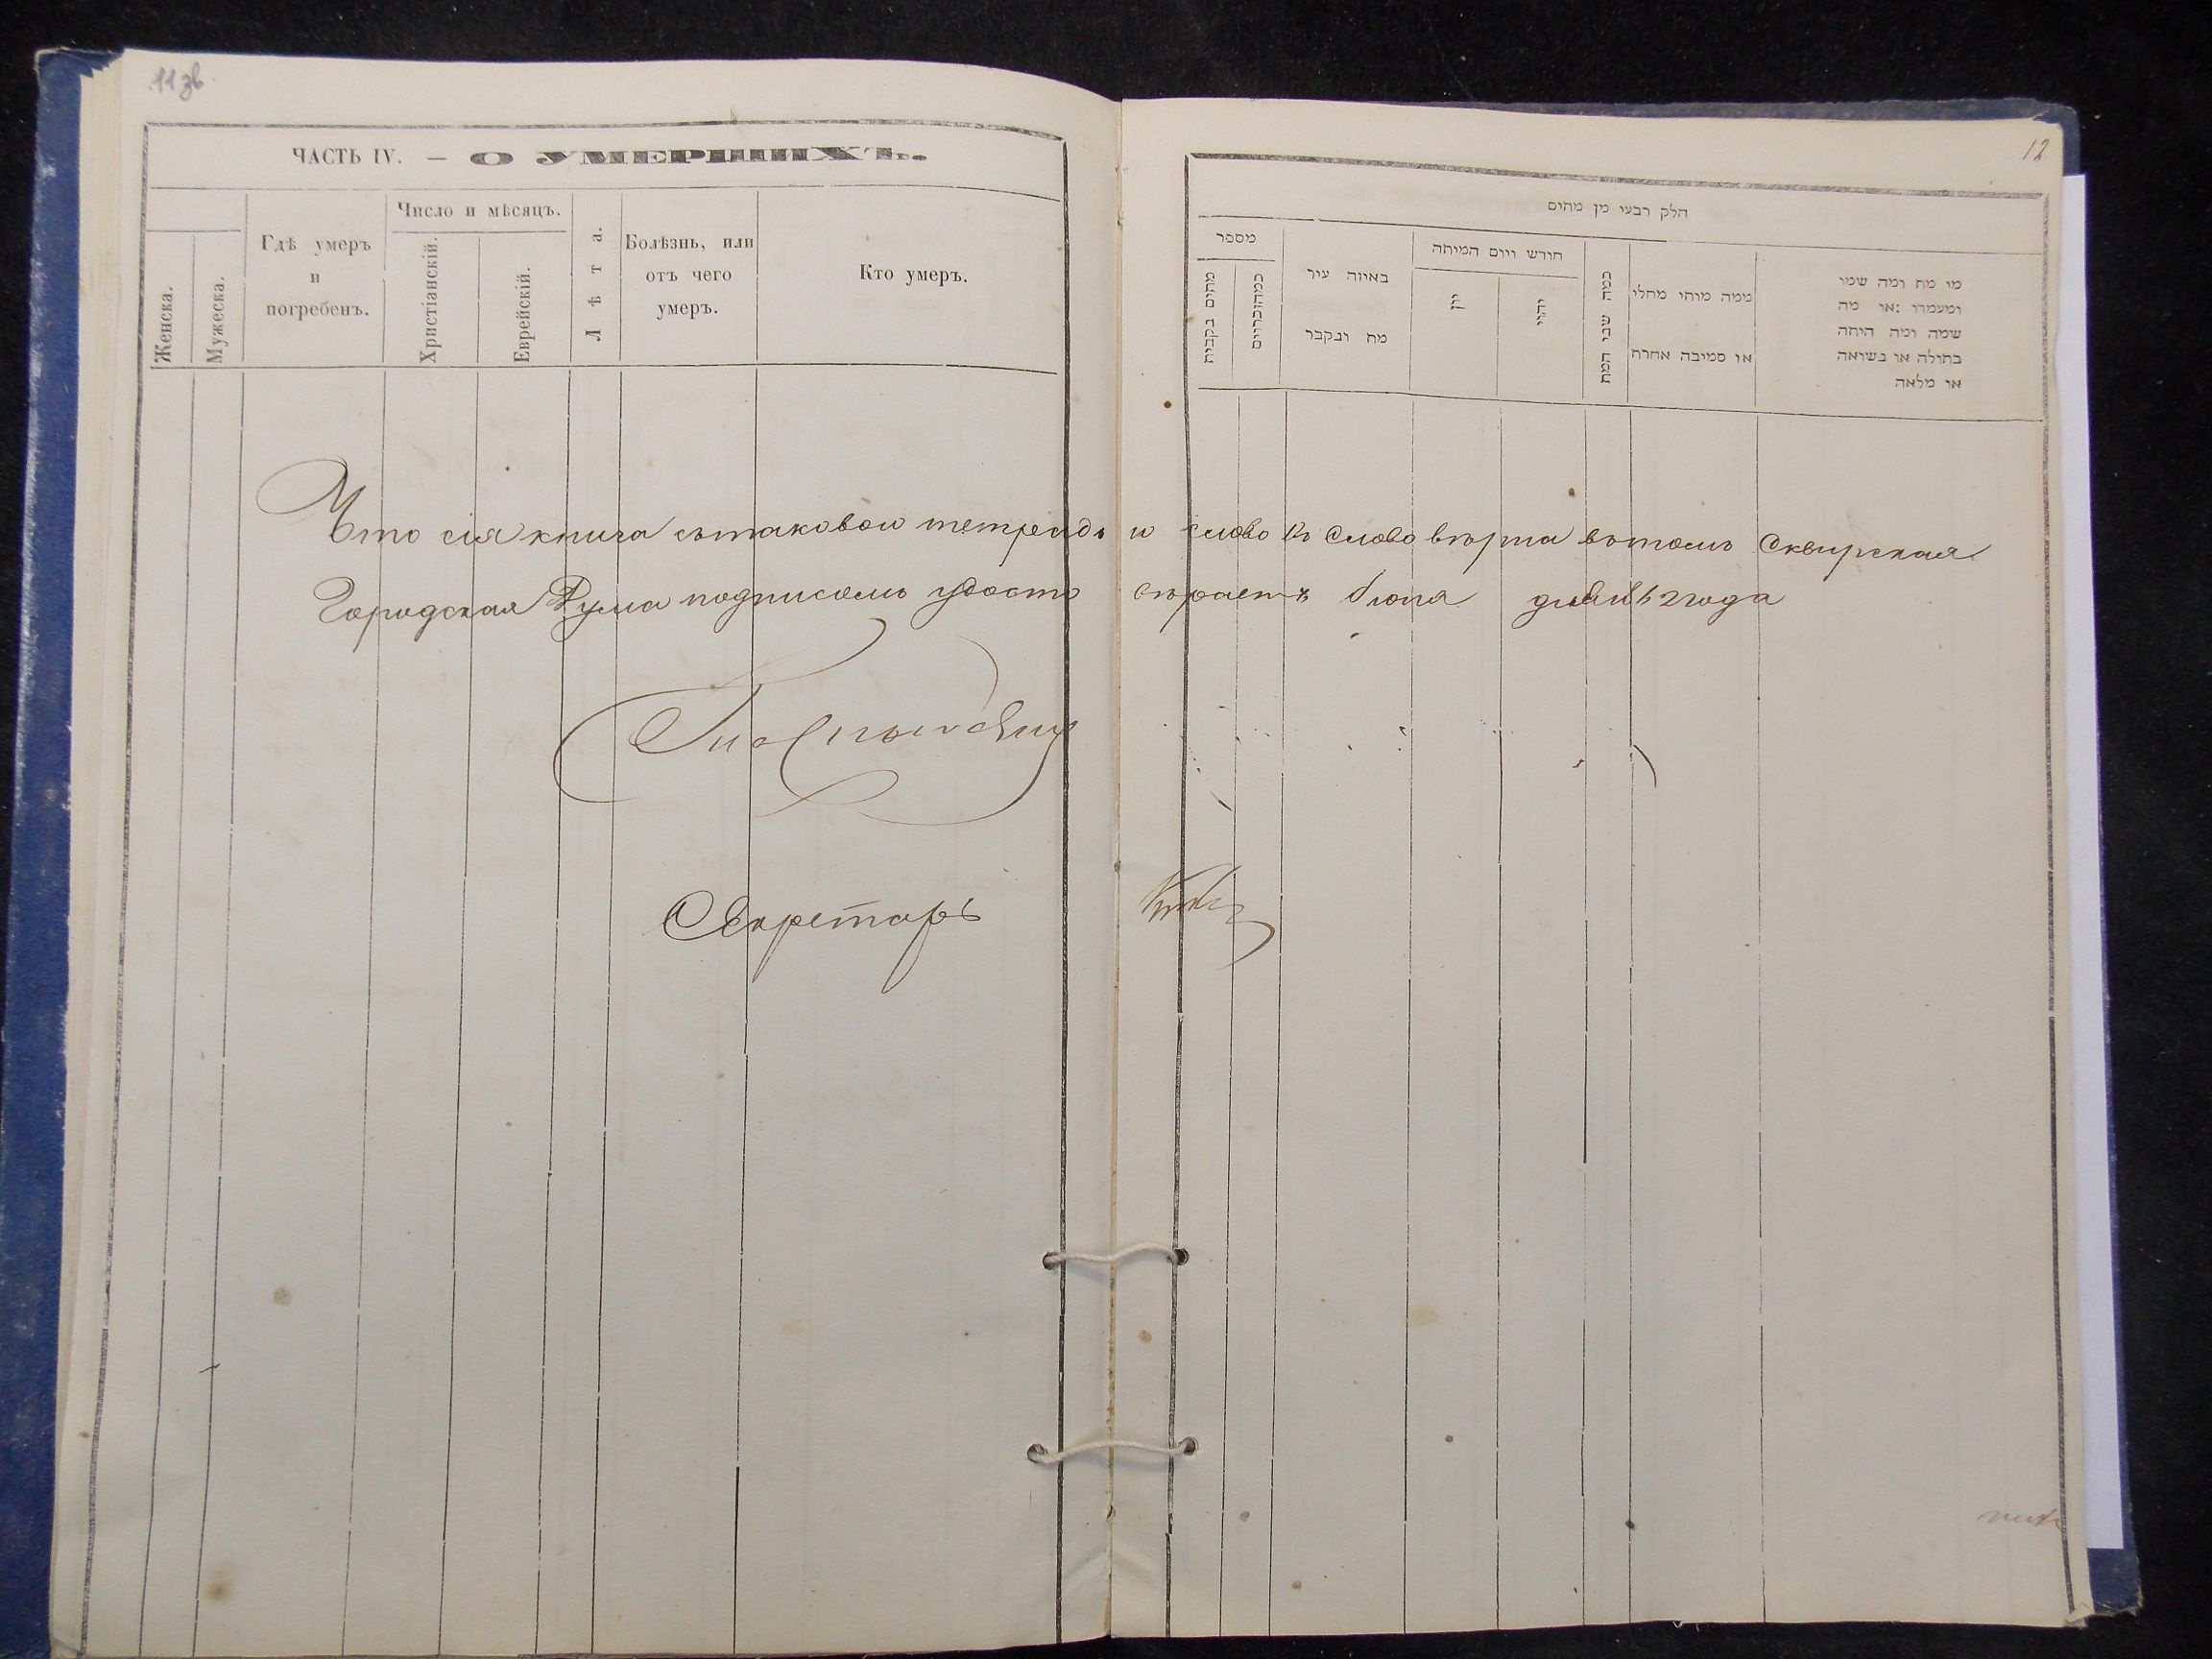 11 зв.
ЧАСТЬ IV. — О УМЕРШИХЪ.
Женска.
Мужеска.
Гдѣ умеръ
и
погребенъ.
Число и мѣсяцъ.
Христіанскій.
Еврейскій.
Лѣта.
Болѣзнь, или
отъ чего
умеръ.
Кто умеръ.
12
חלק רבעי מן מתים
מספר
מתים בקבות
חודש ויום המיתה
באיזה עיר
מת ונקבר
יון
יהודי
כמה שני המת
ממה מותו מחלי
או מסיבה אחרת
מי מת ומה שמו
ומעמדו :או מה
שמה ומה היתה
בתולה או נשואה
או מלאה
Что сія книга сътаковою тетрадью слово въ слово вѣрна вътомъ Сквирская
Городская Дума подписомъ удостовѣряетъ Іюня дня 1862 года
Секретарь